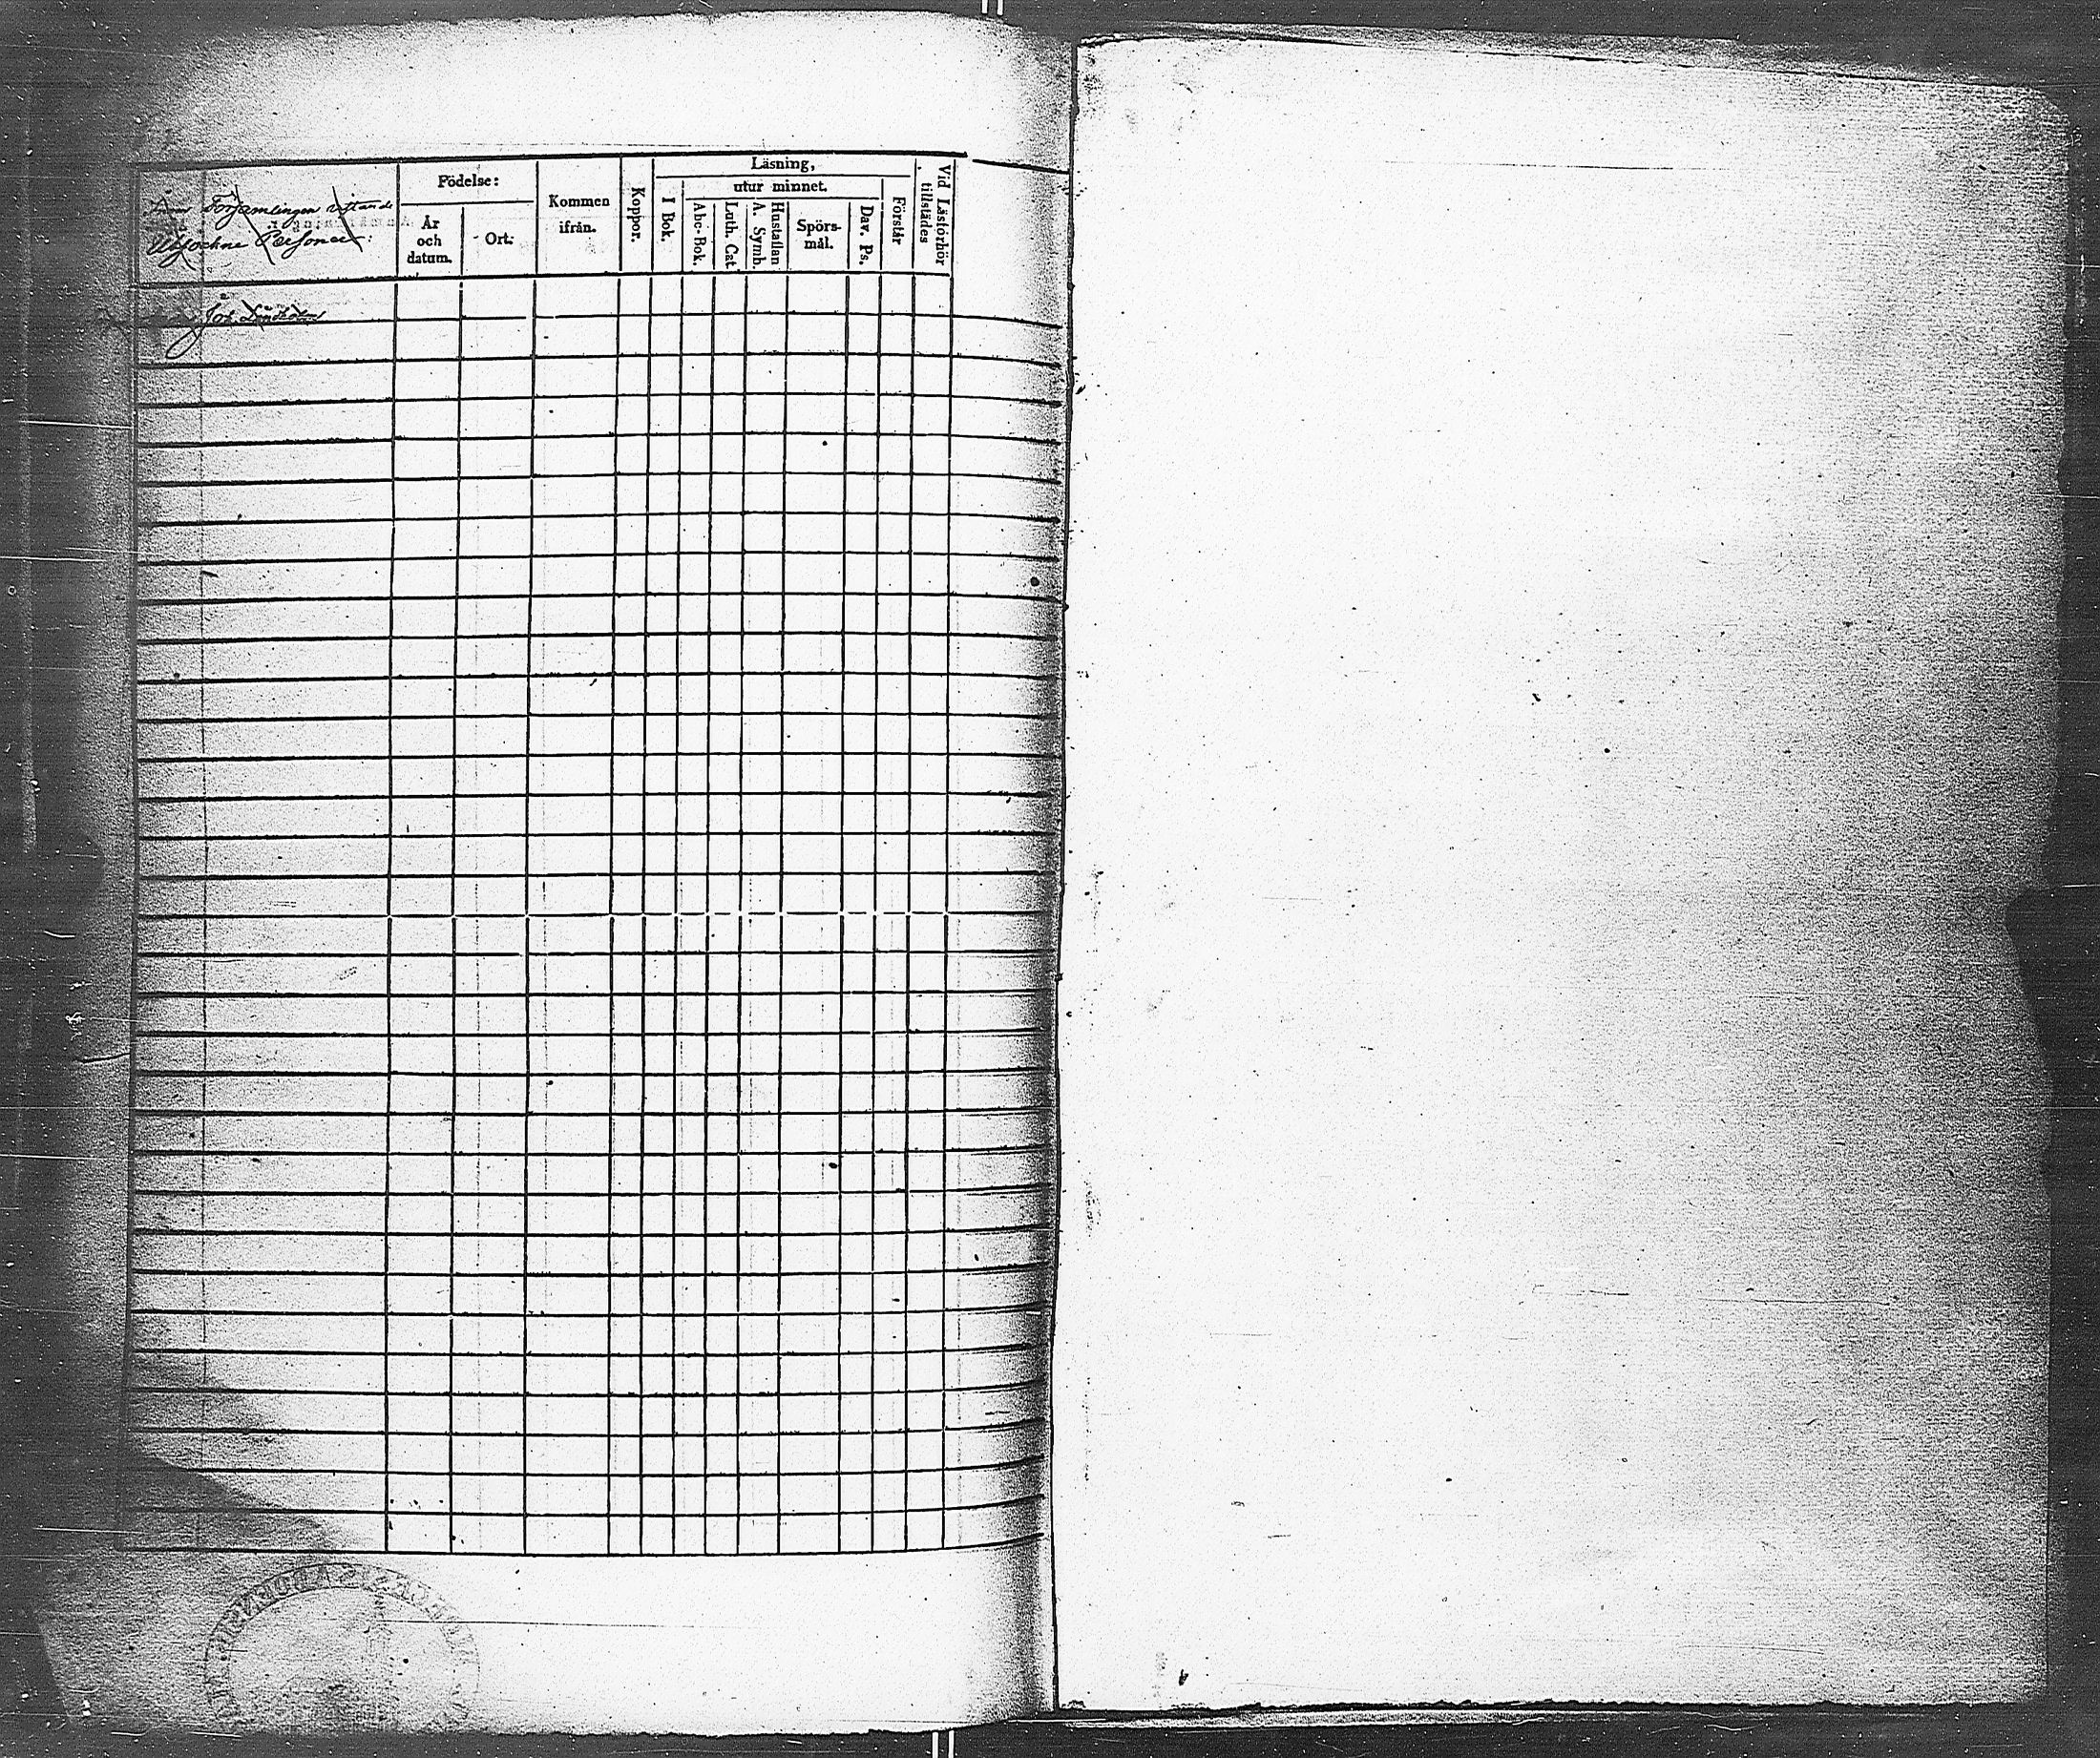 Inom Församlingen vistande
Utsochne Personer:
Födelse:
År
och
datum.
Ort.
Kommen
ifrån.
Koppor.
Läsning,
I Bok.
utur minnet.
Abc-Bok.
Luth. Cat.
Hustaflan
A. Symb.
Spörs-
mål.
Dav. Ps.
Förstår
Vid Läsförhör
tillstädes
Joh.